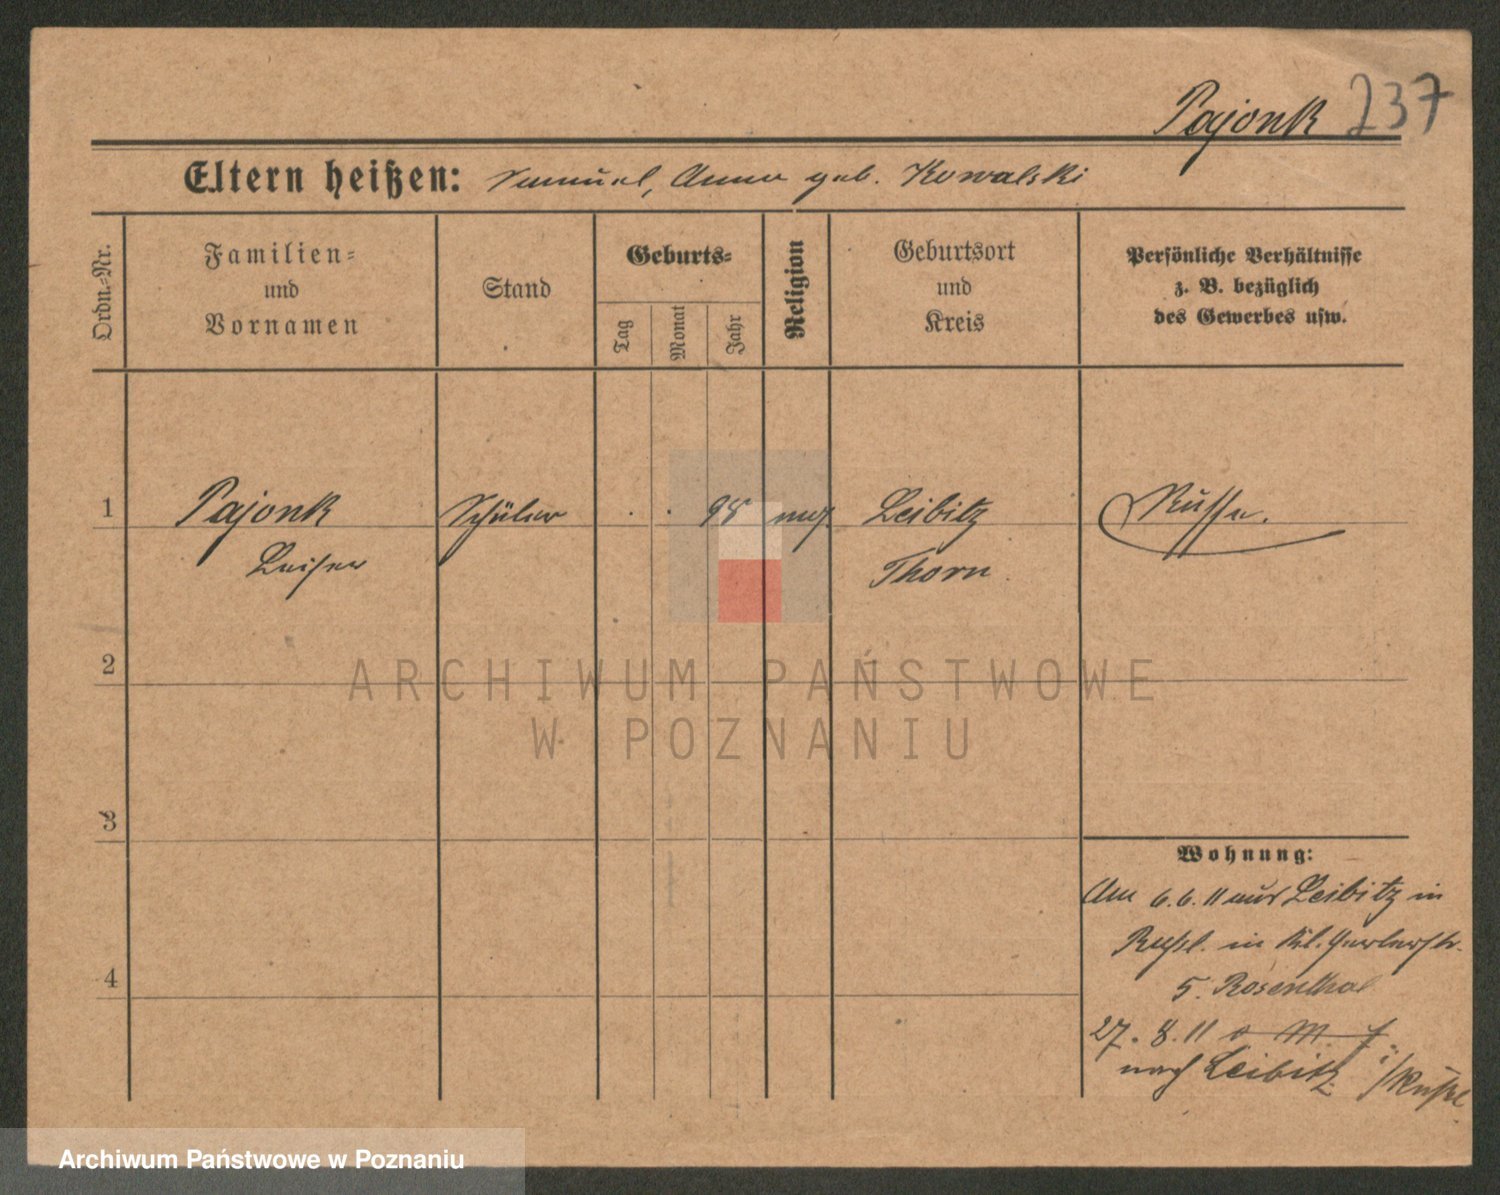 Pajonk 237
Eltern heißen: Samuel, Anna geb. Kowalski
Ordn.-Nr.
Familien-
und
Vornamen
Stand
Geburts-
Tag
Monat
Jahr
Religion
Geburtsort
und
Kreis
Persönliche Verhältnisse
z. B. bezüglich
des Gewerbes usw.
1 Pajonk Schüler . . 98 mos. Leibitz Russe.
Leiser Thorn
2
3
4
Wohnung:
Am 6.6.11 aus Leibitz in
Russl. in Kl. Gerberstr.
5. Rosenthal
27. 8. 11
nach Leibitz i/Russl
ARCHIWUM PAŃSTWOWE
W POZNANIU
Archiwum Państwowe w Poznaniu